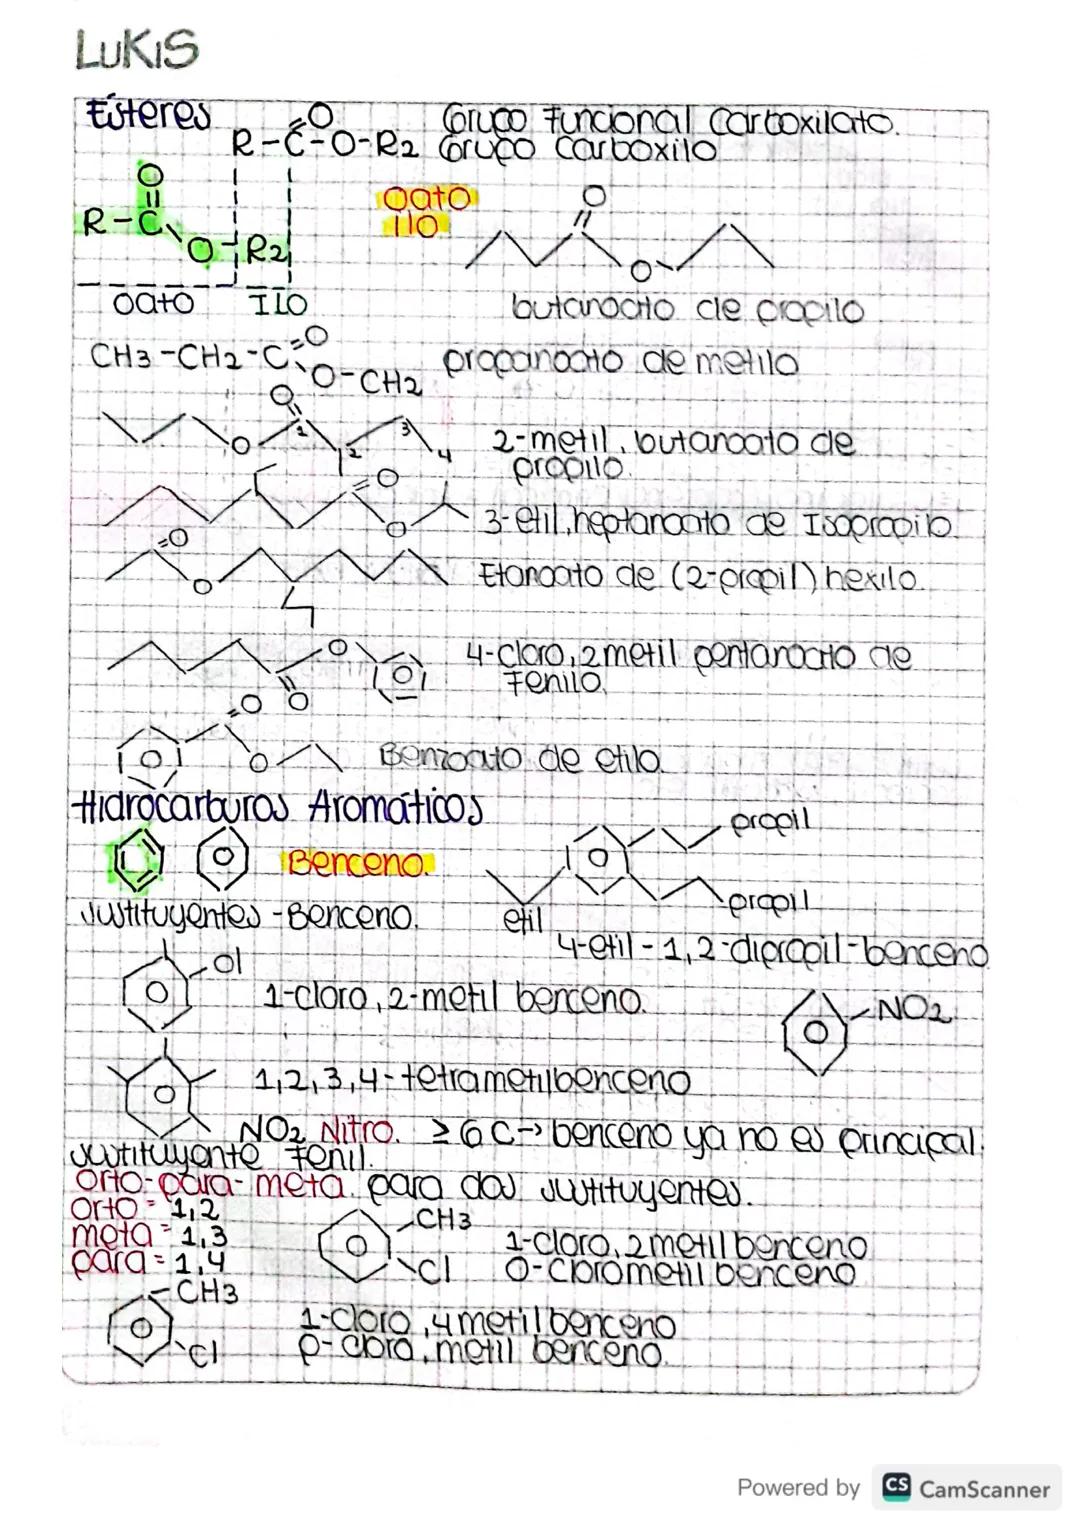 LUKIS
Ésteres
R-C=O-O-R2
Grupo Funcional Carboxilato.
Grupo Carboxilo
O
R-C
O-R2
oato
ILO
oato
ilo
O
O
butanoato de propilo
CH3-CH2-C=O
O-CH2
propanoato de metilo
O
O
1
2
3
4
2-metil, butanoato de
propilo.
O
O
3-etil, heptanoato de Isopropilo.
O
O
Etanoato de (2-propil) hexilo.
O
O
4-cloro, 2metil pentanoato de
Fenilo.
O
O
Benzoato de etilo.
Hidrocarburos Aromáticos
Benceno.
propil
propil
etil
Sustituyentes - Benceno.
4-etil-1,2-dipropil-benceno
Cl
1-cloro, 2-metil benceno.
NO2
1,2,3,4-tetrametilbenceno
NO2 Nitro. ≥ 6 C → benceno ya no es principal.
sustituyente Fenil.
orto-para-meta. para dos sustituyentes.
orto = 1,2
meta = 1,3
para = 1,4
CH3
Cl
1-cloro, 2metil benceno
O-Clorometil benceno
CH3
Cl
1-cloro, 4metilbenceno
p-cloro, metil benceno.
Powered by CS CamScanner